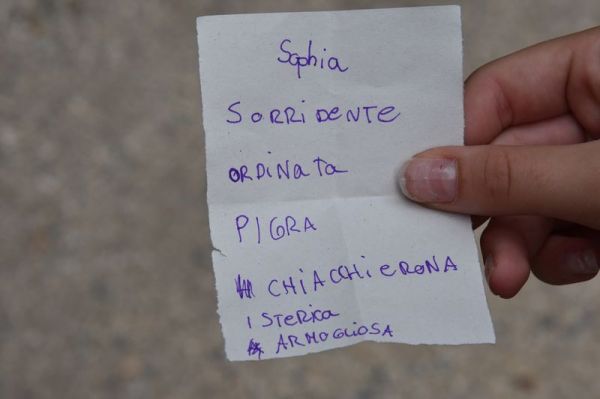 Sophia
SORRIDENTE
ORDINATA
PIGRA
CHIACCHIERONA
ISTERICA
ARMOGLIOSA